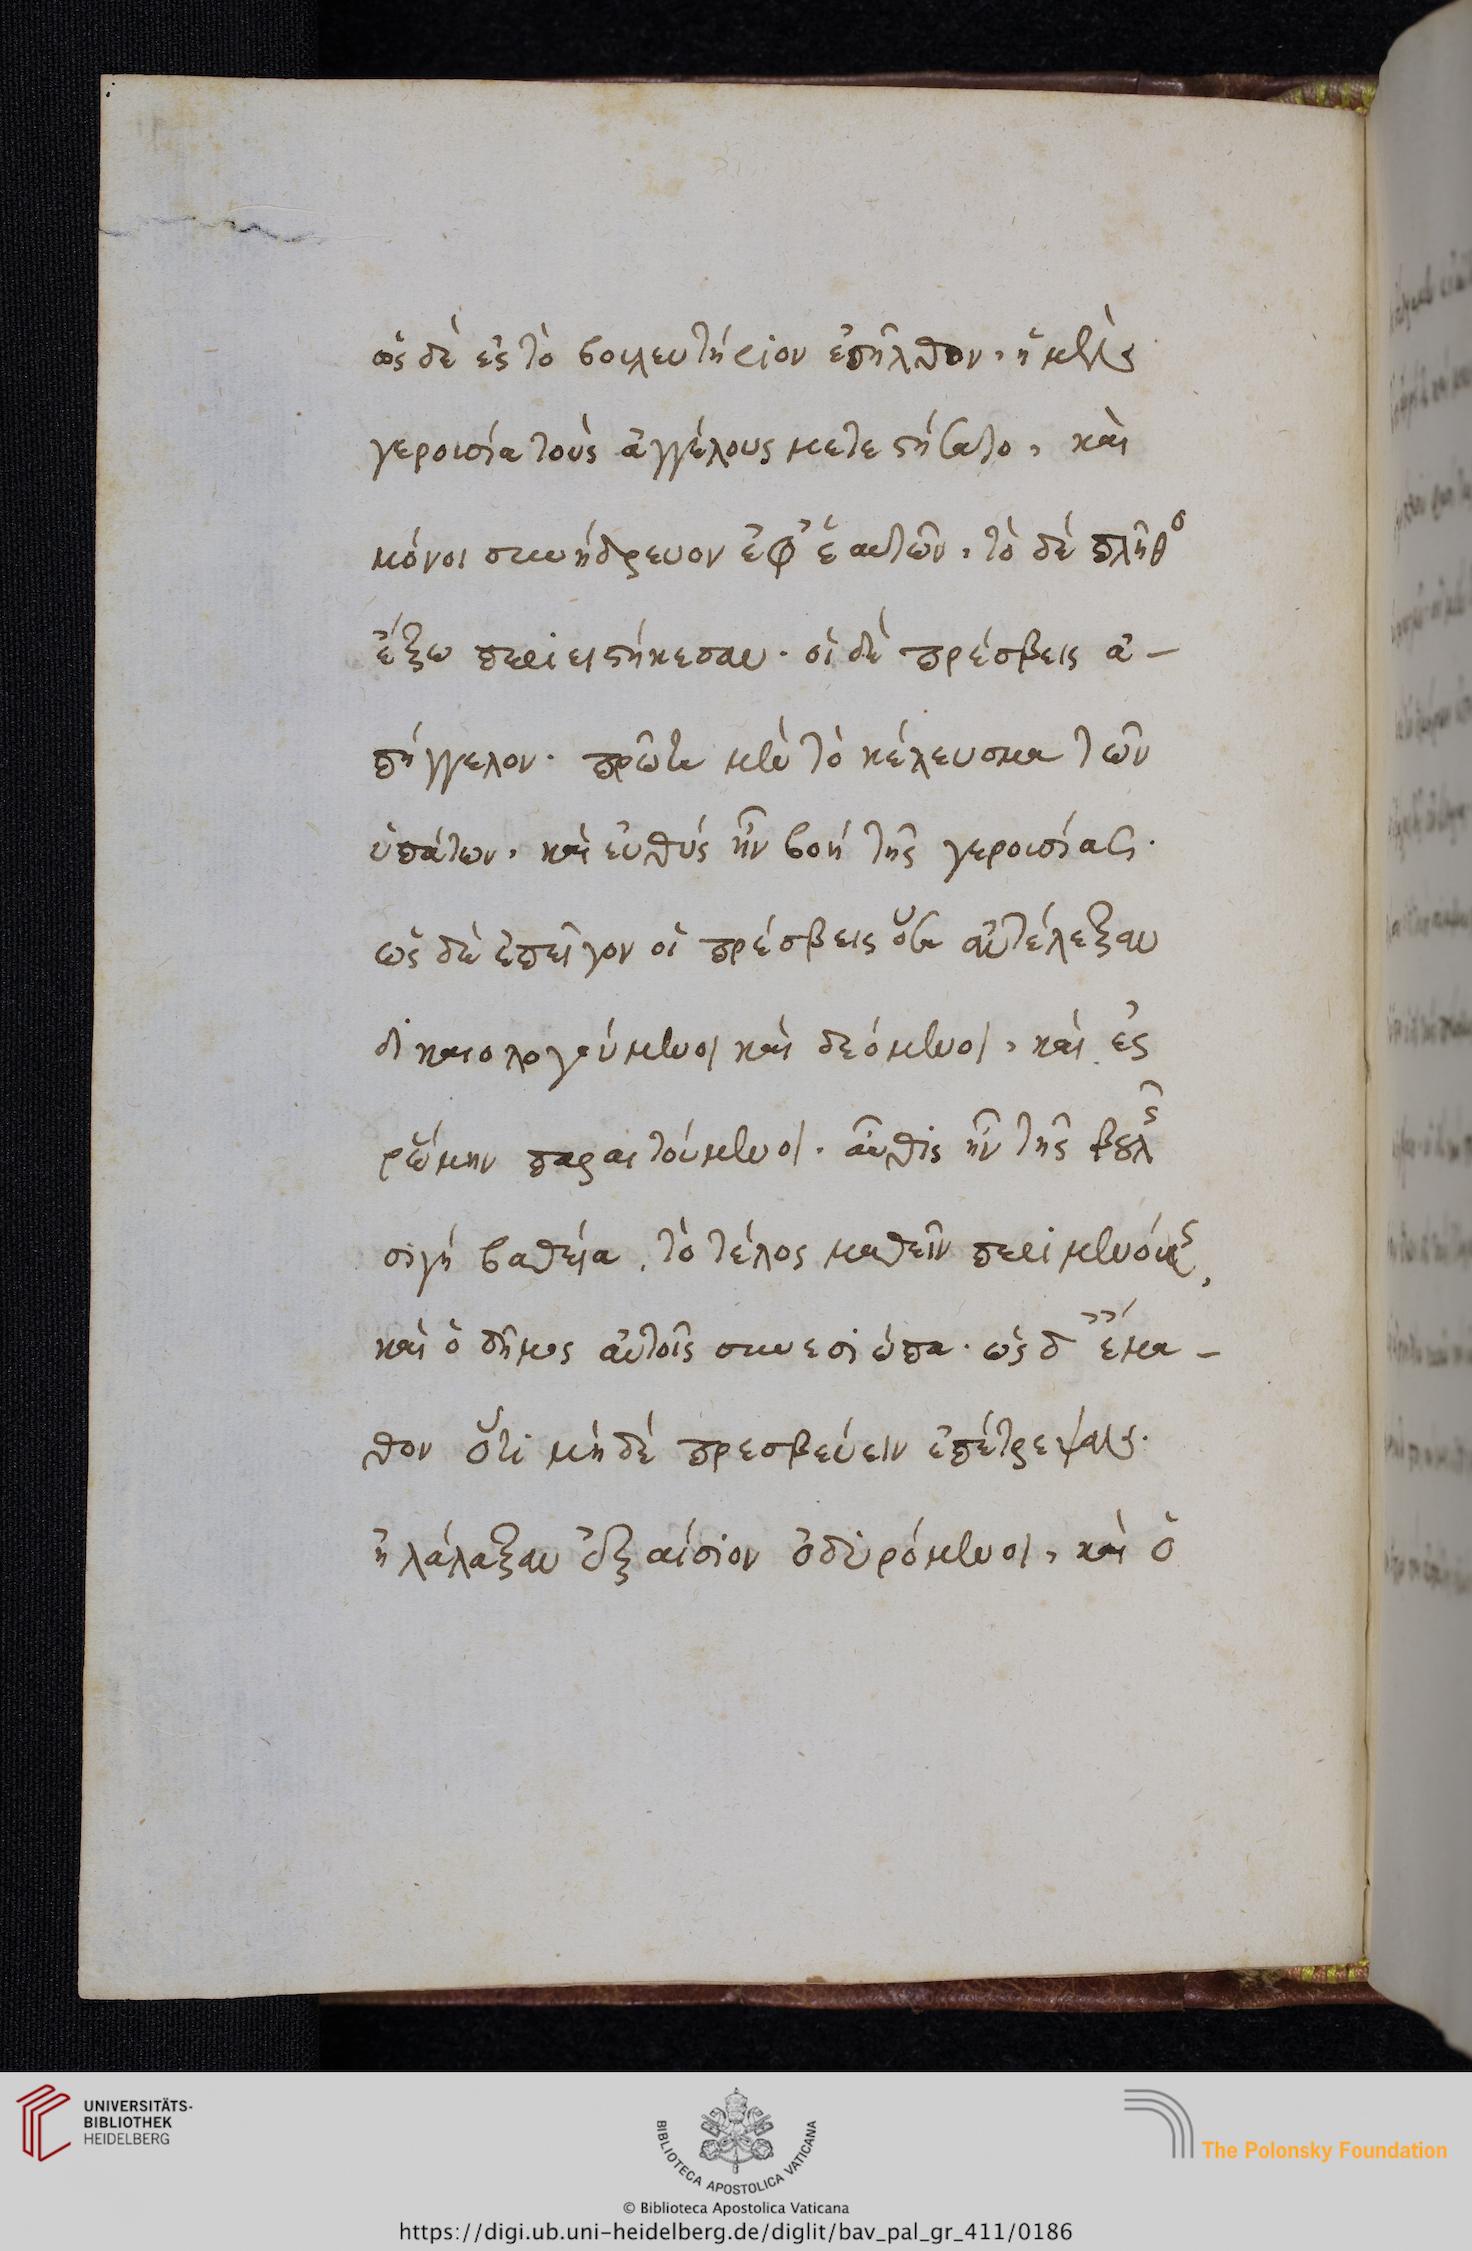 ὡς δὲ ἐς τὸ βουλευτήριον ἐσῆλθον, ἡ μὲν
γερουσία τοὺς ἀγγέλους μετεστήσατο, καὶ
μόνοι συνήδρευον ἐφ' ἑαυτῶν, τὸ δὲ πλῆθος
ἔξω περιειστήκεσαν. οἱ δὲ πρέσβεις ἀ-
πήγγελον. πρῶτα μὲν τὸ κέλευσμα τῶν
ὑπάτων, καὶ εὐθὺς ἦν βοὴ τῆς γερουσίας.
ὡς δὲ ἐπεῖχον οἱ πρέσβεις ὅσα ἀντέλεξαν
δικαιολογούμενοι καὶ δεόμενοι, καὶ ἐς
ῥώμην παραιτούμενοι. αὖθις ἦν τῆς βουλῆς
σιγὴ βαθεῖα, τὸ τέλος μαθεῖν περιμενούσης,
καὶ ὁ δῆμος αὐτοῖς συνεσιώπα. ὡς δ' ἔμα-
θον ὅτι μηδὲ πρεσβεύειν ἐπέτρεψαν.
ἠλάλαξαν ἐξαίσιον ὀδυρόμενοι, καὶ ὁ
UNIVERSITÄTS-
BIBLIOTHEK
HEIDELBERG
BIBLIOTECA APOSTOLICA VATICANA
The Polonsky Foundation
© Biblioteca Apostolica Vaticana
https://digi.ub.uni-heidelberg.de/diglit/bav_pal_gr_411/0186